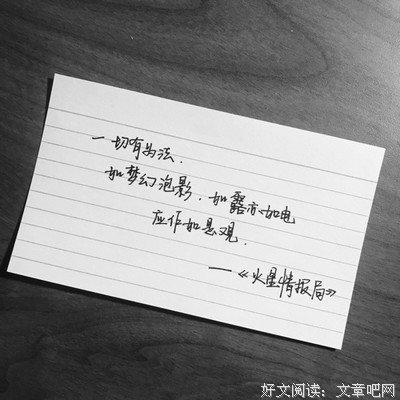 一切有为法.
如梦幻泡影.如露亦如电
应作如是观.
——《火星情报局》
好文阅读:文章吧网